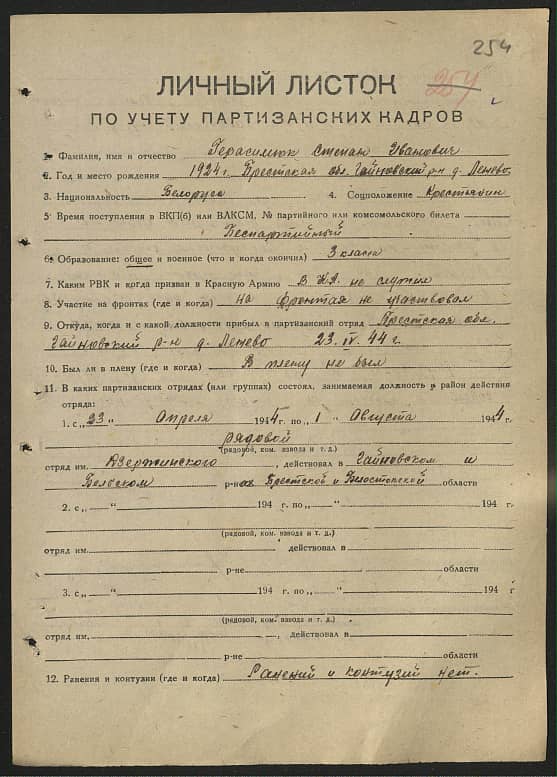 254
ЛИЧНЫЙ ЛИСТОК 254
ПО УЧЕТУ ПАРТИЗАНСКИХ КАДРОВ
1. Фамилия, имя и отчество Герасимюк Степан Иванович
2. Год и место рождения 1924г. Брестская обл. Гайновский р-н д. Ленево
3. Национальность Белорус 4. Соцположение Крестьянин
5. Время поступления в ВКП(б) или ВЛКСМ, № партийного или комсомольского билета
Беспартийный
6. Образование: общее и военное (что и когда окончил) 3 класса
7. Каким РВК и когда призван в Красную Армию В К.А. не служил
8. Участие на фронтах (где и когда) на фронтах не участвовал
9. Откуда, когда и с какой должности прибыл в партизанский отряд Брестская обл.
Гайновский р-н д. Ленево 23.IV.44г.
10. Был ли в плену (где и когда) В плену не был
11. В каких партизанских отрядах (или группах) состоял, занимаемая должность и район действия
отряда:
1. с „23“ Апреля 1944 г. по „1“ Августа 1944 г.
рядовой
(рядовой, ком. взвода и т. д.)
отряд им. Дзержинского, действовал в Гайновском и
Бельском р-нах Брестской и Белостокской области
2. с „ “ 194 г. по „ “ 194 г.
(рядовой, ком. взвода и т. д.)
отряд им. действовал в
р-не области
3. с „ “ 194 г. по „ “ 194 г
(рядовой, ком. взвода и т. д.)
отряд им. , действовал в
р-не области
12. Ранения и контузии (где и когда) Ранений и контузий нет.